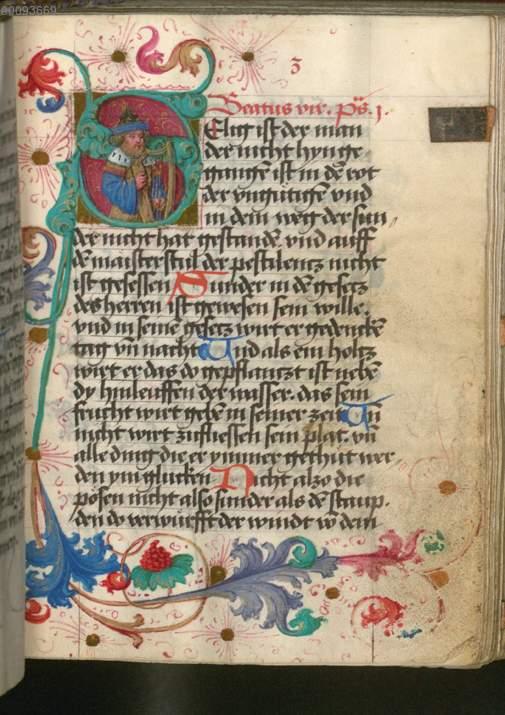 00093669
3
Beatus vir. ps. j.
Selig ist der man
der nicht hynge
gangē ist in dē rot
der vngütigē vnd
in dem weg der sun
der nicht hat gestandē. vnd auff
dē maisterstul der pestilentz nicht
ist gesessen Sunder in dē gesetz
des herren ist gewesen sein wille.
vnd in seinē gesetz wirt er gedenckē
tag vn̄ nacht Vnd als ein holtz
wirt er das do gepflantzt ist nebē
dy hinleuffen der wasser. das sein
frucht wirt gebē in seiner zeit Vn̄
nicht wirt zufliessen sein plat. vn̄
alle ding die er ymmer gethut wer
den ym glucken Nicht also die
pösen nicht also sunder als dē staup.
den do verwürfft der windt vō dem